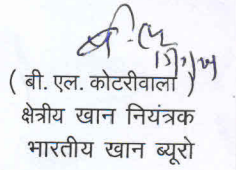 ( बी. एल. कोटरीवाला )
क्षेत्रीय खान नियंत्रक
भारतीय खान ब्यूरो